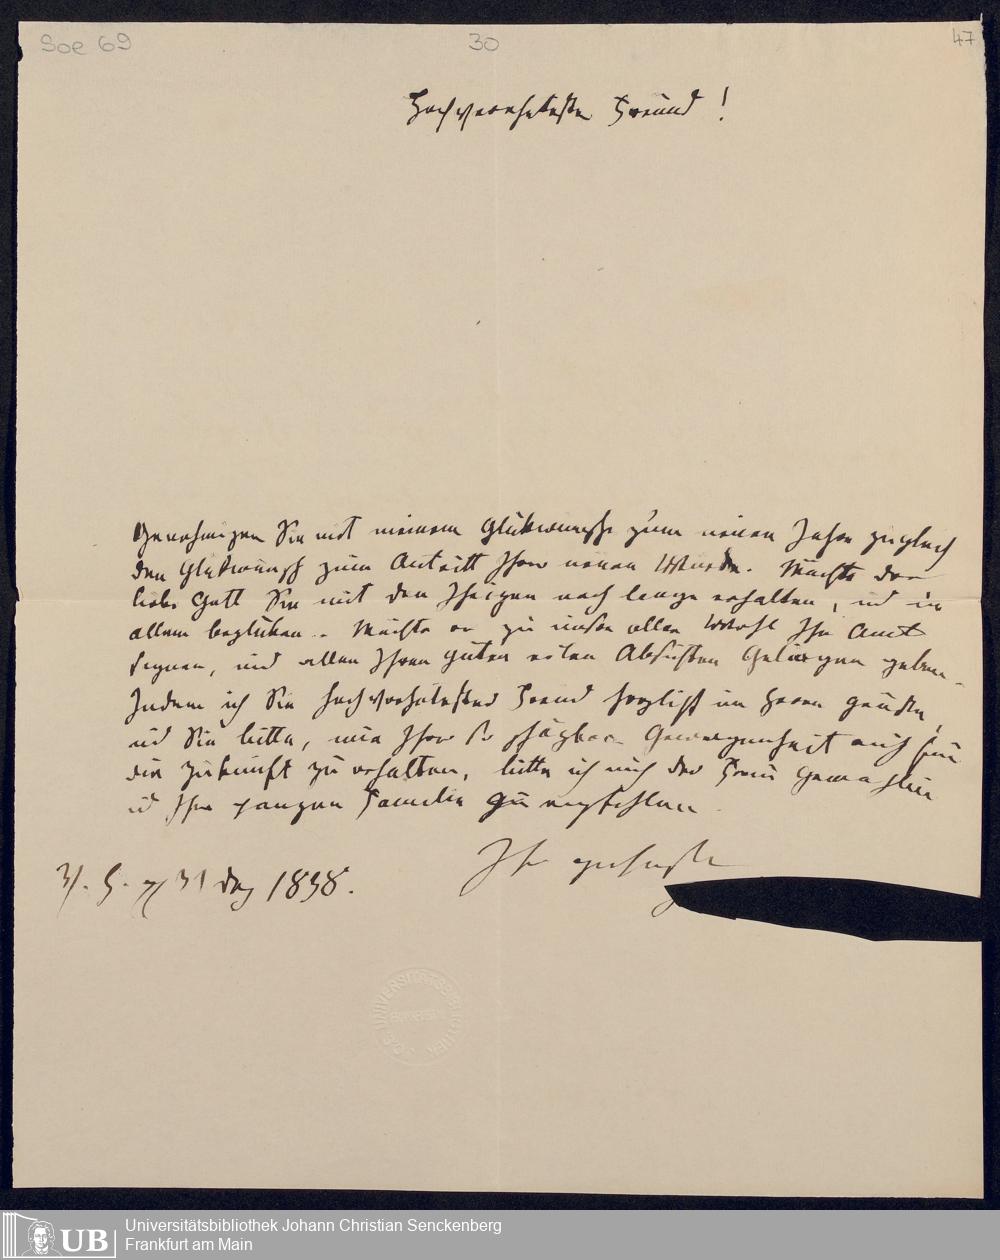 Soe 69
30
47
Hochverehrtester Freund!
Genehmigen Sie mit meinem Glükwunsche zum neuen Jahre zugleich
den Glükwunsch zum Antritt Ihrer neuen Würde. Möchte der
liebe Gott Sie mit den Ihrigen noch lange erhalten, und in
allem beglüken. Möchte er zu unser aller Wohl Ihr Amt
segnen, und allen Ihren guten edlen Absichten Gelingen geben.
Indem ich Sie hochverehrtester Freund herzlich im Herrn grüße,
und Sie bitte, mir Ihre so schäzbare Gewogenheit auch für
die Zukunft zu erhalten, bitte ich mich der Frau Gemahlin
und Ihrer ganzen Familie zu empfehlen.
Ihr gehorsamster
31 Dez 1838.
UNIVERSITÄTSBIBLIOTHEK
UB
Universitätsbibliothek Johann Christian Senckenberg
Frankfurt am Main